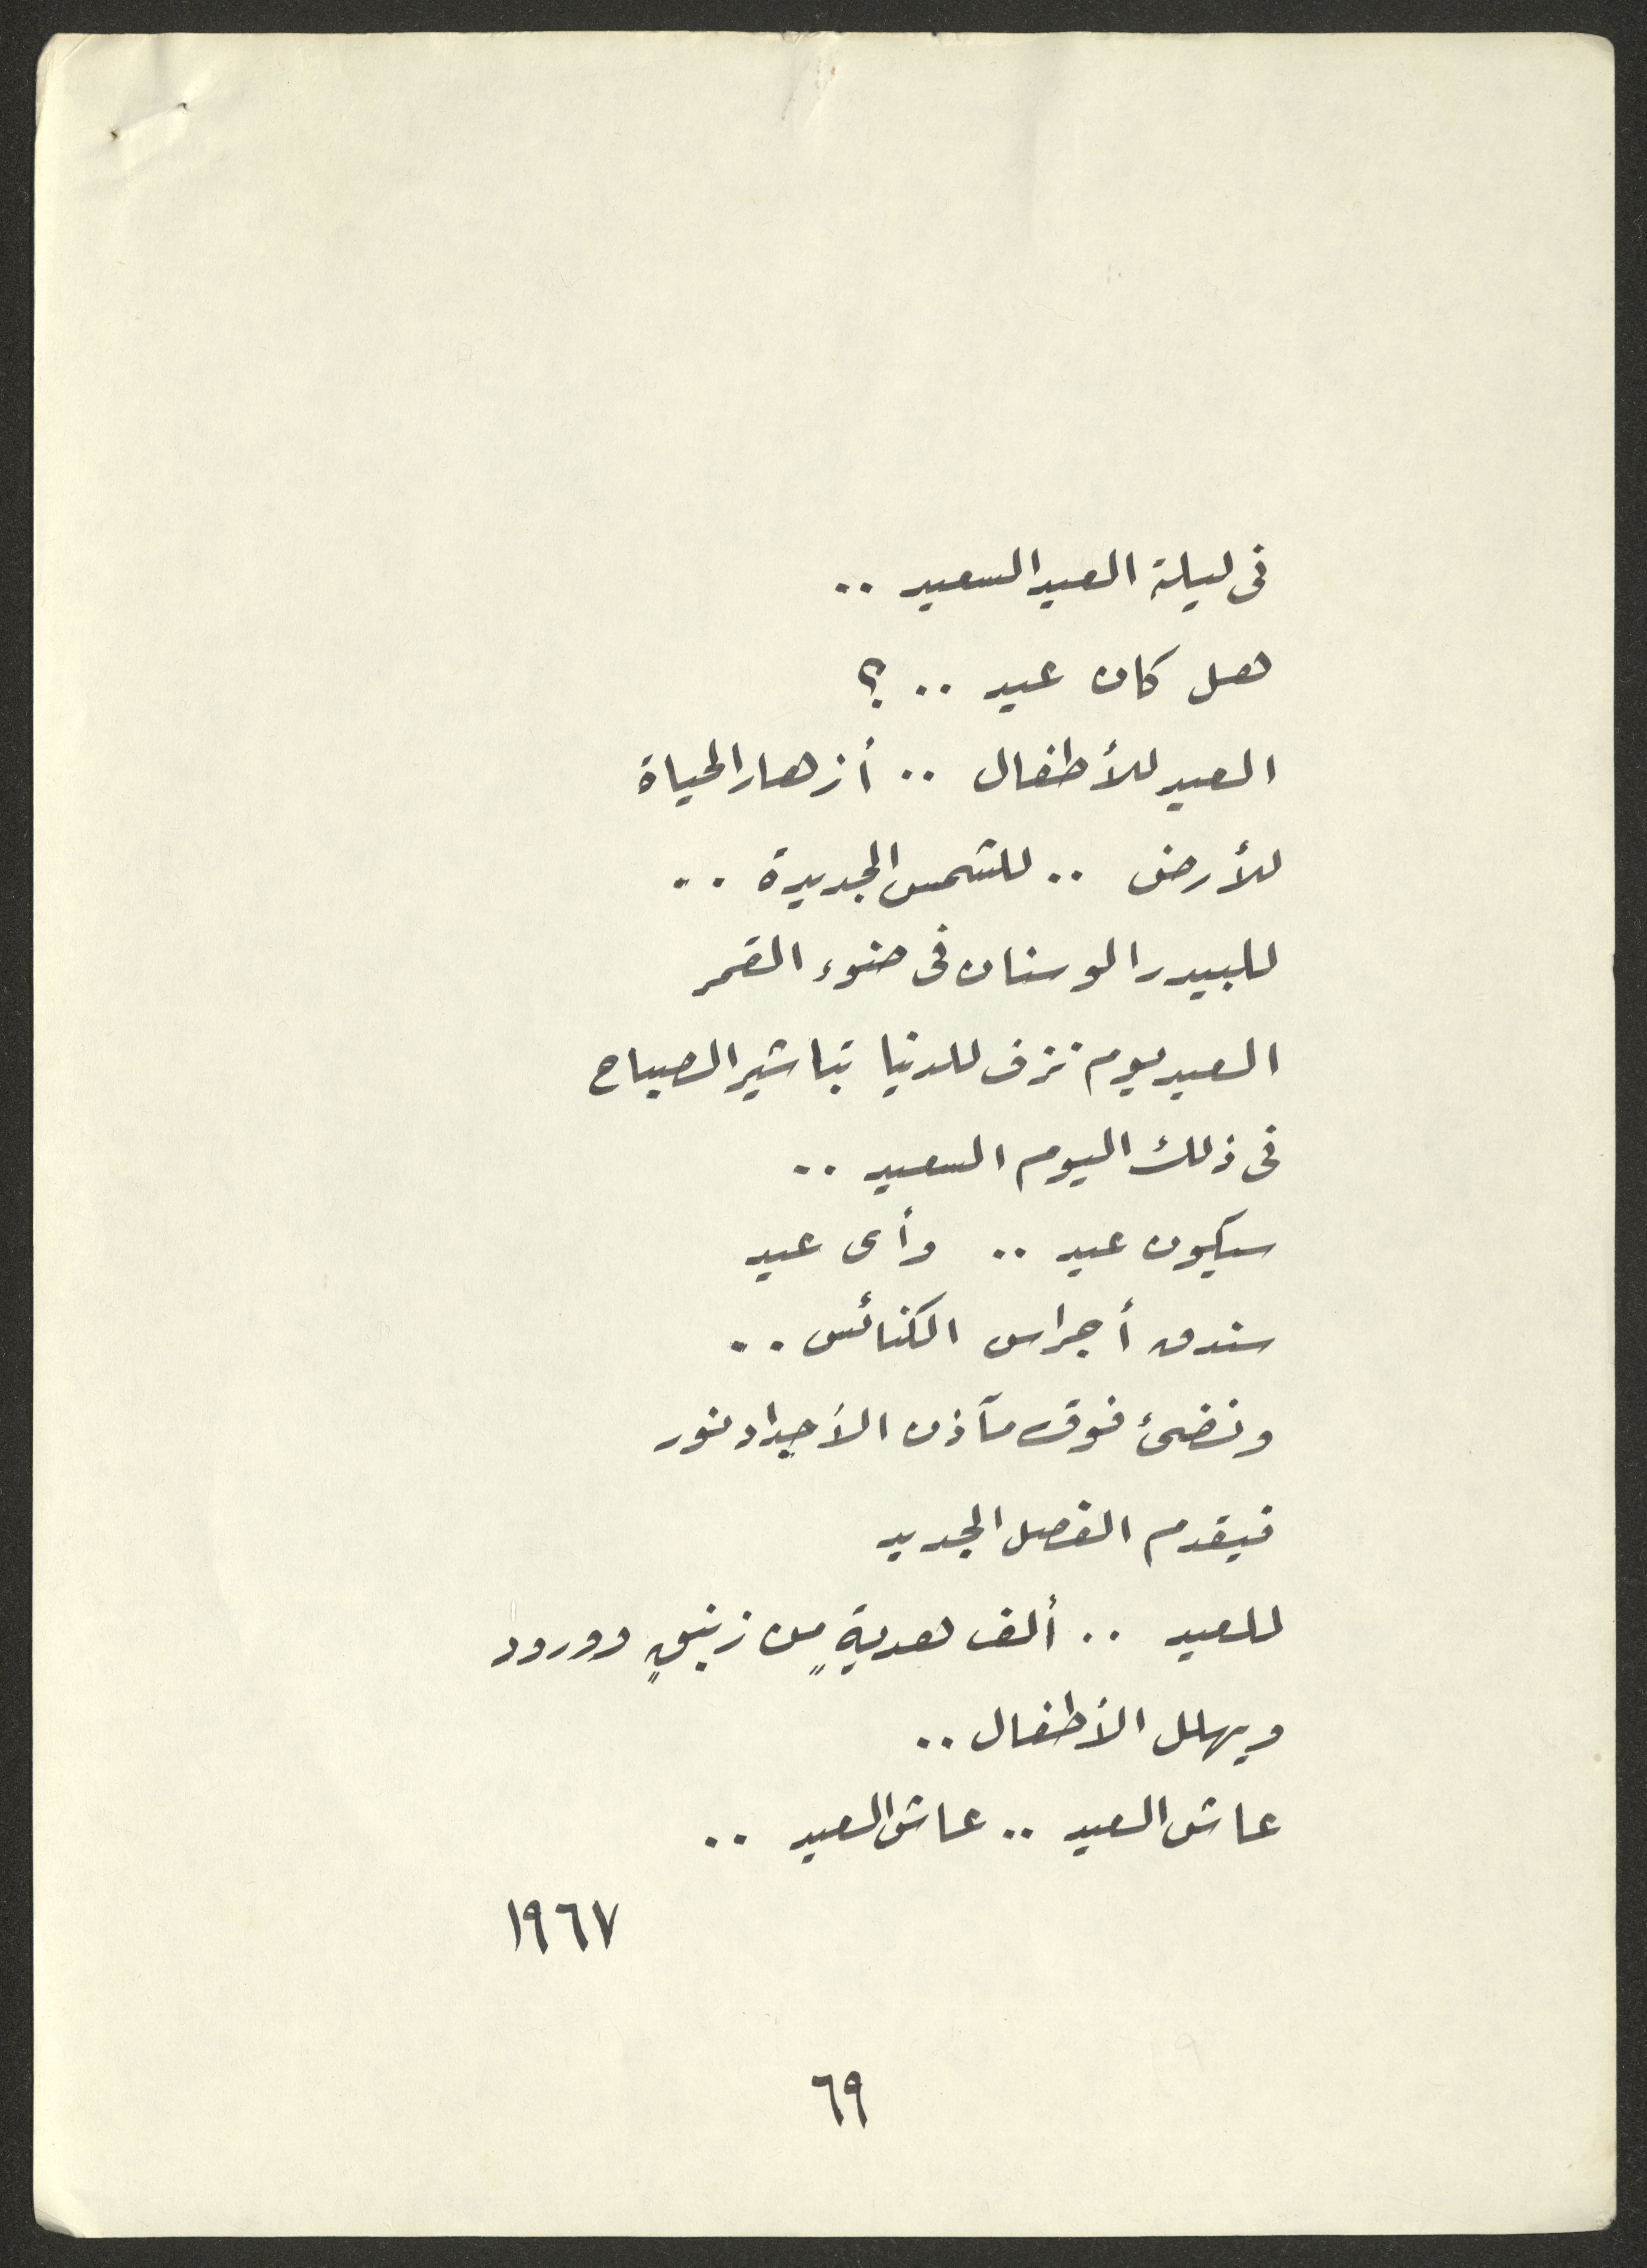 فى ليلة العيد السعيد ..
هل كان عيد .. ؟
العيد للأطفال .. أزهار الحياة
للأرض .. للشمس الجديدة ..
للبيدر الوسنان فى ضوء القمر
العيد يوم نزف للدنيا تباشير الصباح
فى ذلك اليوم السعيد ..
سيكون عيد .. وأى عيد
سندق أجراس الكنائس ..
ونضئ فوق مآذن الأجداد نور
فيقدم الفصل الجديد
للعيد .. ألف هديةٍ من زنبقٍ وورود
ويهلل الأطفال ..
عاش العيد .. عاش العيد ..
١٩٦٧
٦٩